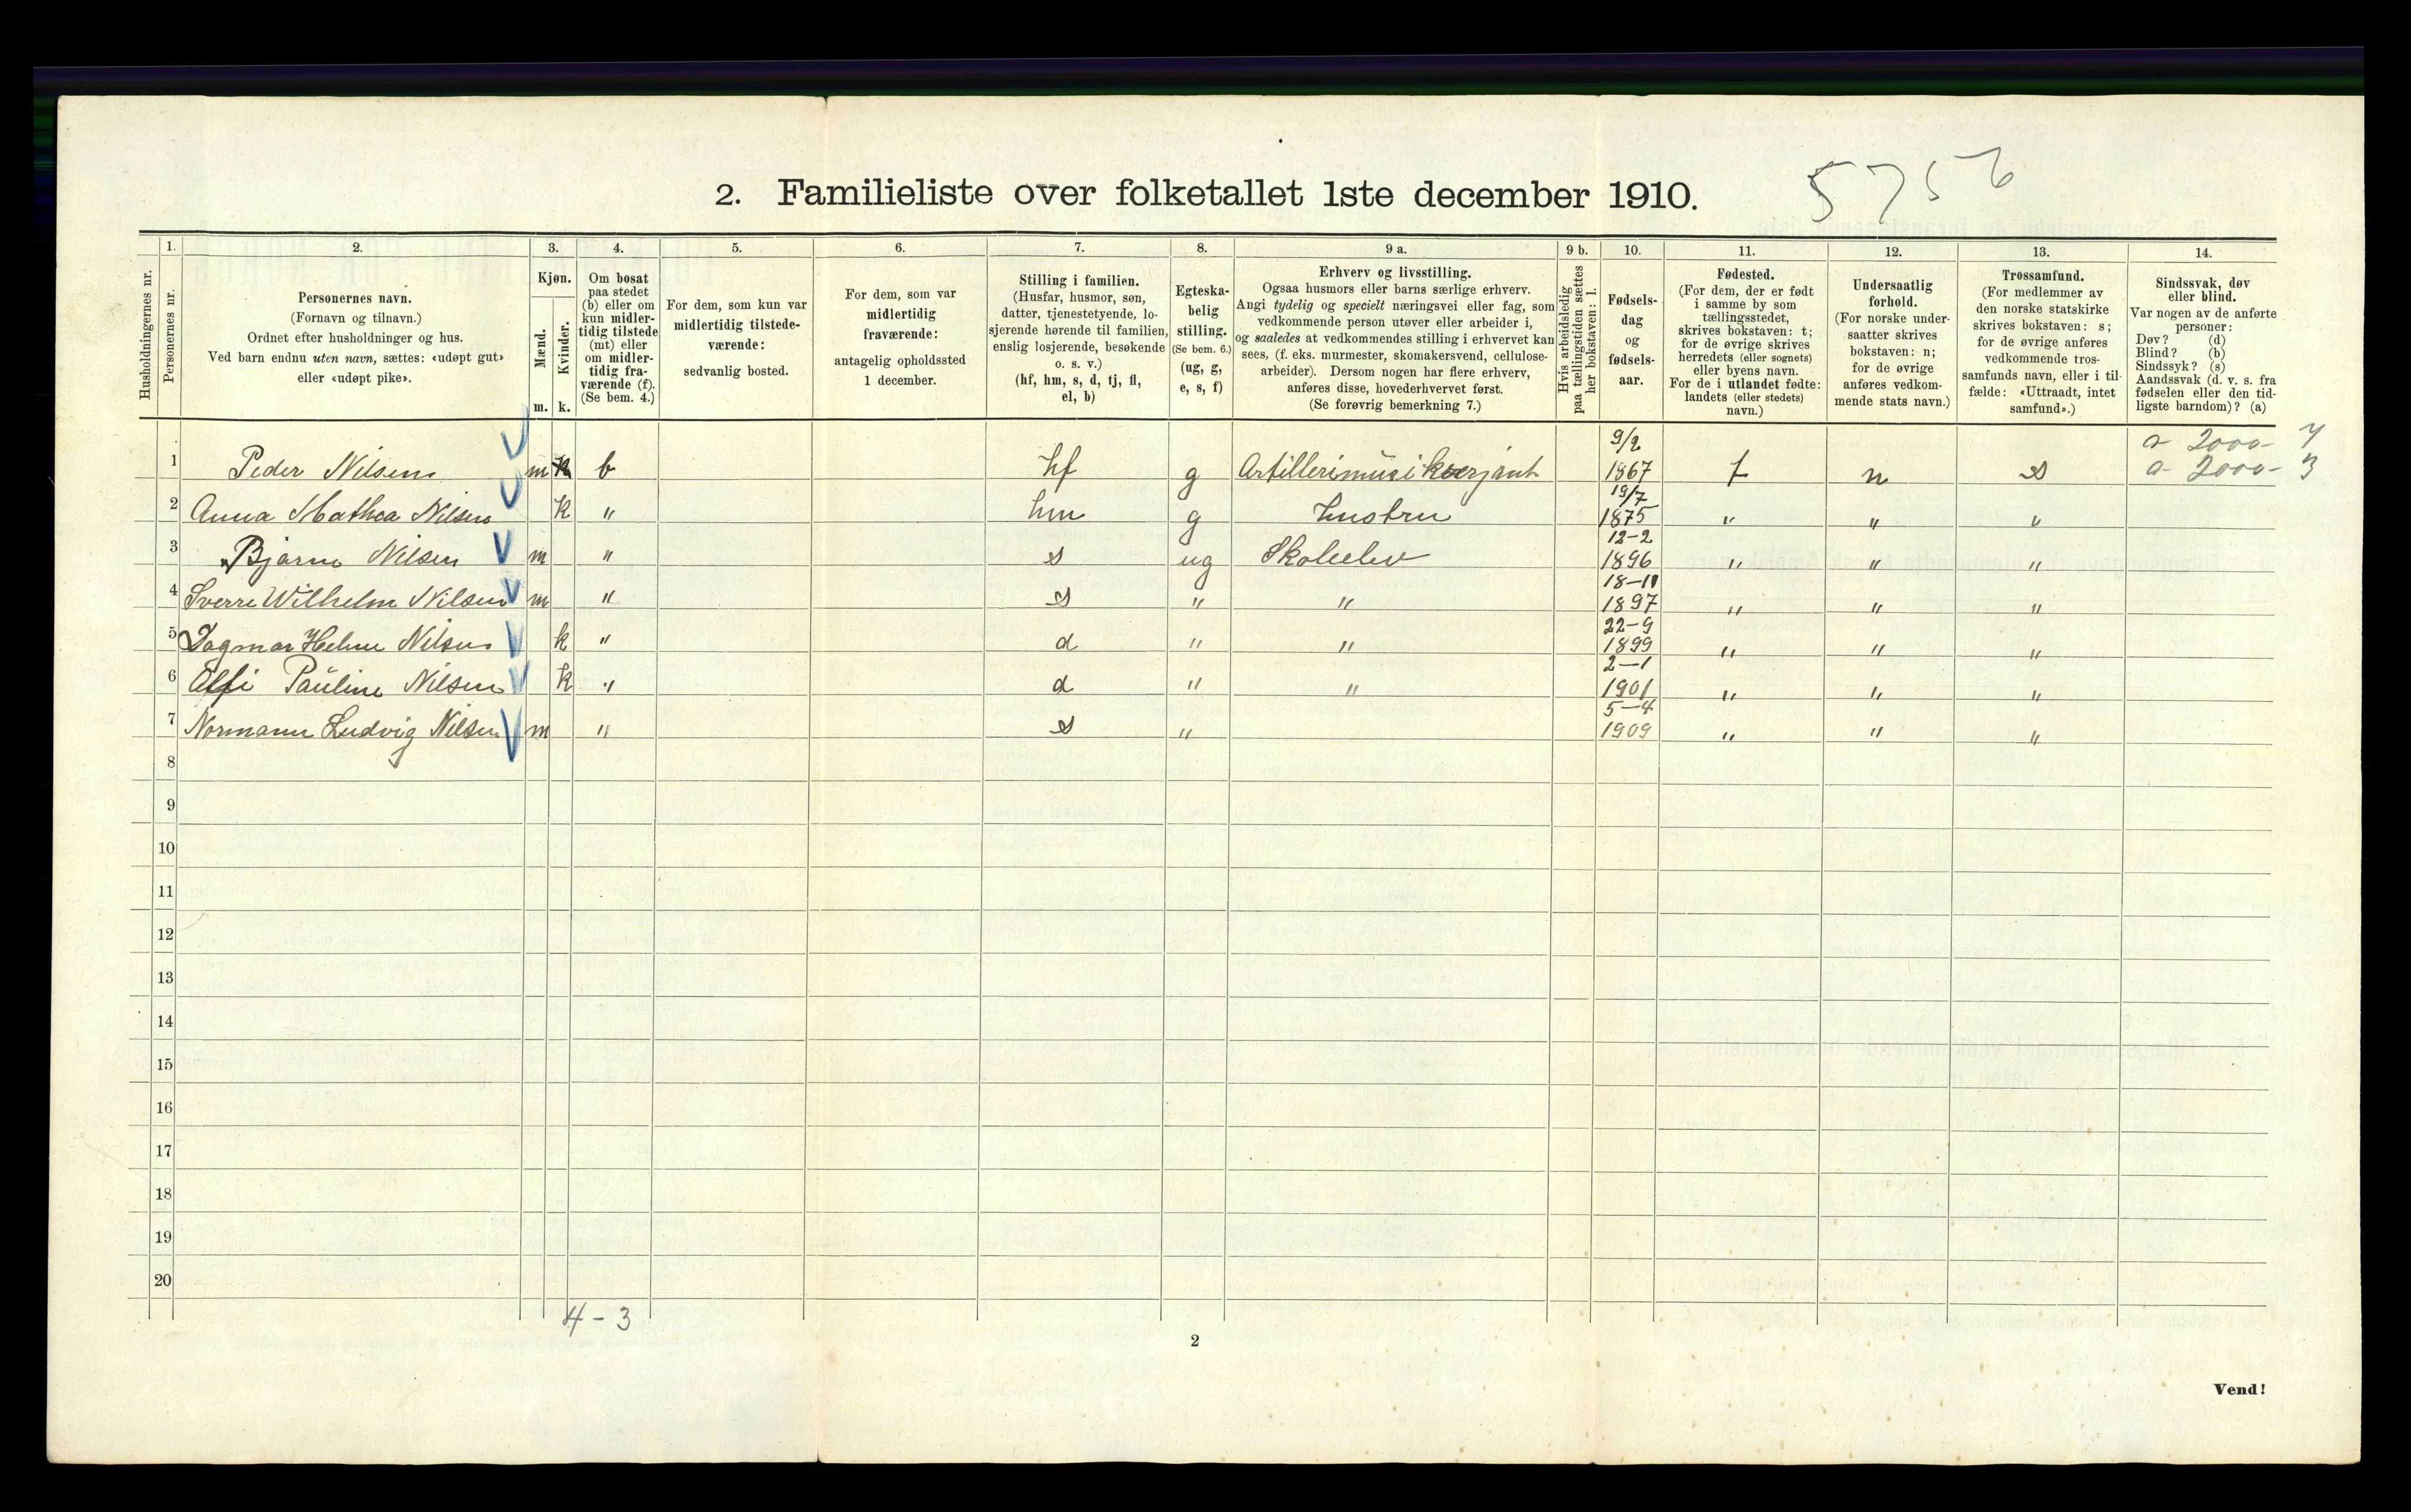 5756
2. Familieliste over folketallet 1ste december 1910.
Husholdningernes nr.
1.
Personernes nr.
2.
Personernes navn.
(Fornavn og tilnavn.)
Ordnet efter husholdninger og hus.
Ved barn endnu uten navn, sættes: «udøpt gut»
eller «udøpt pike».
3.
Kjøn.
Mænd.
Kvinder.
m. k.
4.
Om bosat
paa stedet
(b) eller om
kun midler-
tidig tilstede
(mt) eller
om midler-
tidig fra-
værende (f).
(Se bem. 4.)
5.
For dem, som kun var
midlertidig tilstede-
værende:
sedvanlig bosted.
6.
For dem, som var
midlertidig
fraværende:
antagelig opholdssted
1 december.
7.
Stilling i familien.
(Husfar, husmor, søn,
datter, tjenestetyende, lo-
sjerende hørende til familien,
enslig losjerende, besøkende
o. s. v.)
(hf, hm, s, d, tj, fl,
el, b)
8.
Egteska-
belig
stilling.
(Se bem. 6.)
(ug, g,
e, s, f)
9 a.
Erhverv og livsstilling.
Ogsaa husmors eller barns særlige erhverv.
Angi tydelig og specielt næringsvei eller fag, som
vedkommende person utøver eller arbeider i,
og saaledes at vedkommendes stilling i erhvervet kan
sees, (f. eks. murmester, skomakersvend, cellulose-
arbeider). Dersom nogen har flere erhverv,
anføres disse, hovederhvervet først.
(Se forøvrig bemerkning 7.)
9 b.
Hvis arbeidsledig
paa tællingstiden sættes
her bokstaven: l.
10.
Fødsels-
dag
og
fødsels-
aar.
11.
Fødested.
(For dem, der er født
i samme by som
tællingsstedet,
skrives bokstaven: t;
for de øvrige skrives
herredets (eller sognets)
eller byens navn.
For de i utlandet fødte:
landets (eller stedets)
navn.)
12.
Undersaatlig
forhold.
(For norske under-
saatter skrives
bokstaven: n;
for de øvrige
anføres vedkom-
mende stats navn.)
13.
Trossamfund.
(For medlemmer av
den norske statskirke
skrives bokstaven: s;
for de øvrige anføres
vedkommende tros-
samfunds navn, eller i til-
fælde: «Uttraadt, intet
samfund».)
14.
Sindssvak, døv
eller blind.
Var nogen av de anførte
personer:
Døv? (d)
Blind? (b)
Sindssyk? (s)
Aandssvak (d. v. s. fra
fødselen eller den tid-
ligste barndom)? (a)
1 Peder Nilsen m b hf g Artillerimusikserjant 9/2 1867 t n s
2000- 4
a 2000- 3
2 Anna Mathea Nilsen k " hm g hustru 19/7 1875 " " "
3 Bjarne Nilsen m " s ug Skoleelev 12-2 1896 " " "
4 Sverre Wilhelm Nilsen m " s " " 18-11 1897 " " "
5 Dagmar Helene Nilsen k " d " " 22-9 1899 " " "
6 Alfi Pauline Nilsen k " d " " 2-1 1901 " " "
7 Normann Ludvig Nilsen m " s " 5-4 1909 " " "
8
9
10
11
12
13
14
15
16
17
18
19
20
4-3
2
Vend!